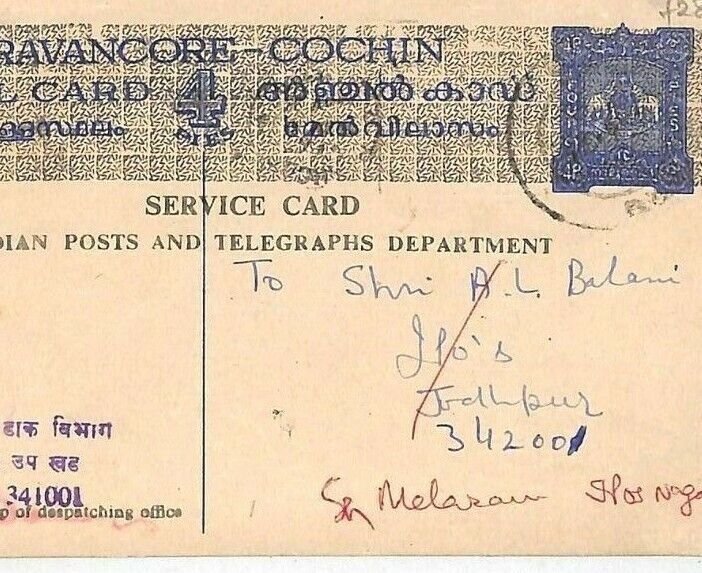 RAVANCORE-COCHIN
L CARD 4 അഞ്ചൽ കാഡ്
PIES മേൽവിലാസം
SERVICE CARD
DIAN POSTS AND TELEGRAPHS DEPARTMENT
To Shri A.L. Balani
IPO's
Jodhpur
342001
डाक विभाग
उप खंड
341001
p of despatching office
Sh Melaram IPOs Naga